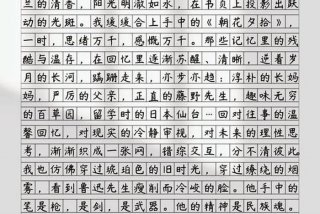 兰的清香，阳光明澈如水，在书页上投影出跃
动的光斑。我缓缓合上手中的《朝花夕拾》，
一时，思绪万千，感慨万千。那些记忆里的残
酷与温存，在回忆里逐渐苏醒、清晰，逆着岁
月的长河，蹒跚走来，亦步亦趋：淳朴的长妈
妈，严厉的父亲，正直的藤野先生，趣味无穷
的百草园，留学时的日本仙台…回对往事的温
馨回忆，对现实的冷静审视，对未来的理性思
考，渐渐织成一张网，错综交互，分不清彼此
我也仿佛穿过琥珀色的旧时光，穿过缭绕的烟
雾，看到鲁迅先生瘦削而冷峻的脸。他手中的
笔是枪，是剑，是武器。他的精神是民族魂。